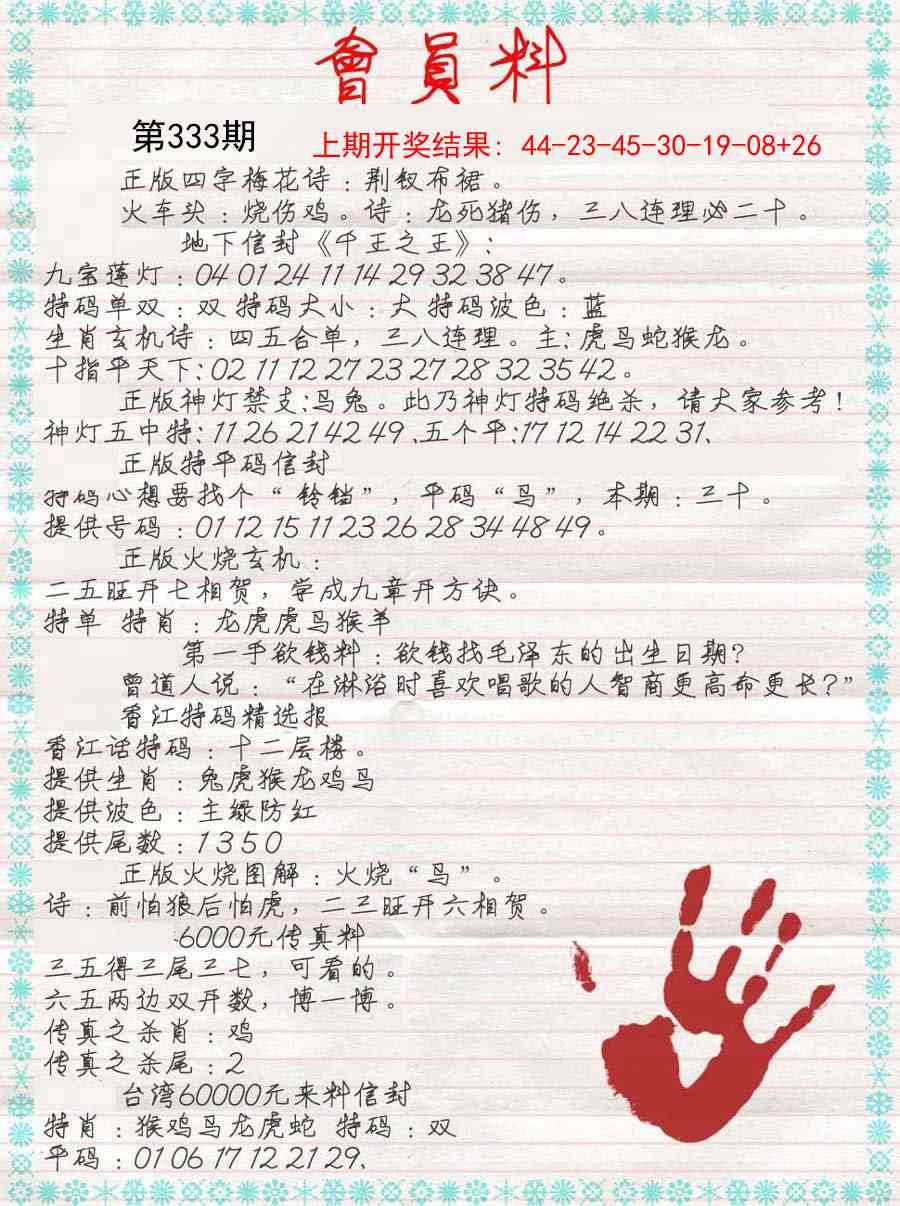 會員料
第333期 上期开奖结果：44-23-45-30-19-08+26
正版四字梅花诗：荆钗布裙。
火车头：烧伤鸡。诗：龙死猪伤，三八连理必二十。
地下信封《千王之王》：
九宝莲灯：04 01 24 11 14 29 32 38 47。
特码单双：双 特码大小：大 特码波色：蓝
生肖玄机诗：四五合单，三八连理。主：虎马蛇猴龙。
十指平天下：02 11 12 27 23 27 28 32 35 42。
正版神灯禁支：马兔。此乃神灯特码绝杀，请大家参考！
神灯五中特：11 26 21 42 49、五个平：17 12 14 22 31、
正版特平码信封
特码心想要找个“铃铛”，平码“鸟”，本期：三十。
提供号码：01 12 15 11 23 26 28 34 48 49。
正版火烧玄机：
二五旺开七相贺，学成九章开方诀。
特单 特肖：龙虎虎马猴羊
第一手欲钱料：欲钱找毛泽东的出生日期？
曾道人说：“在淋浴时喜欢唱歌的人智商更高命更长？”
香江特码精选报
香江话特码：十二层楼。
提供生肖：兔虎猴龙鸡马
提供波色：主绿防红
提供尾数：1 3 5 0
正版火烧图解：火烧“鸟”。
诗：前怕狼后怕虎，二三旺开六相贺。
6000元传真料
三五得三尾三七，可看的。
六五两边双开数，博一博。
传真之杀肖：鸡
传真之杀尾：2
台湾60000元来料信封
特肖：猴鸡马龙虎蛇 特码：双
平码：01 06 17 12 21 29、